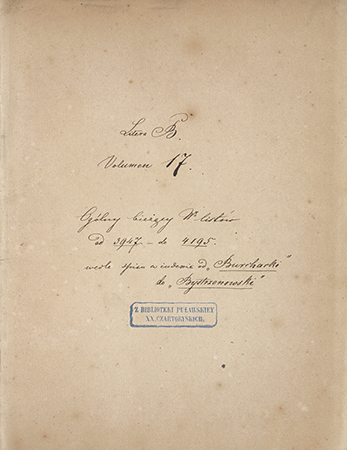 Litera B.
Volumen 17.
Ogólny bieżący № listów
od 3947 – do 4195.
wedle spisu w indexie od „Burchacki"
do „Bystrzonowski"
Z BIBLIOTEKI PUŁAWSKIEY
XX. CZARTORYSKICH.